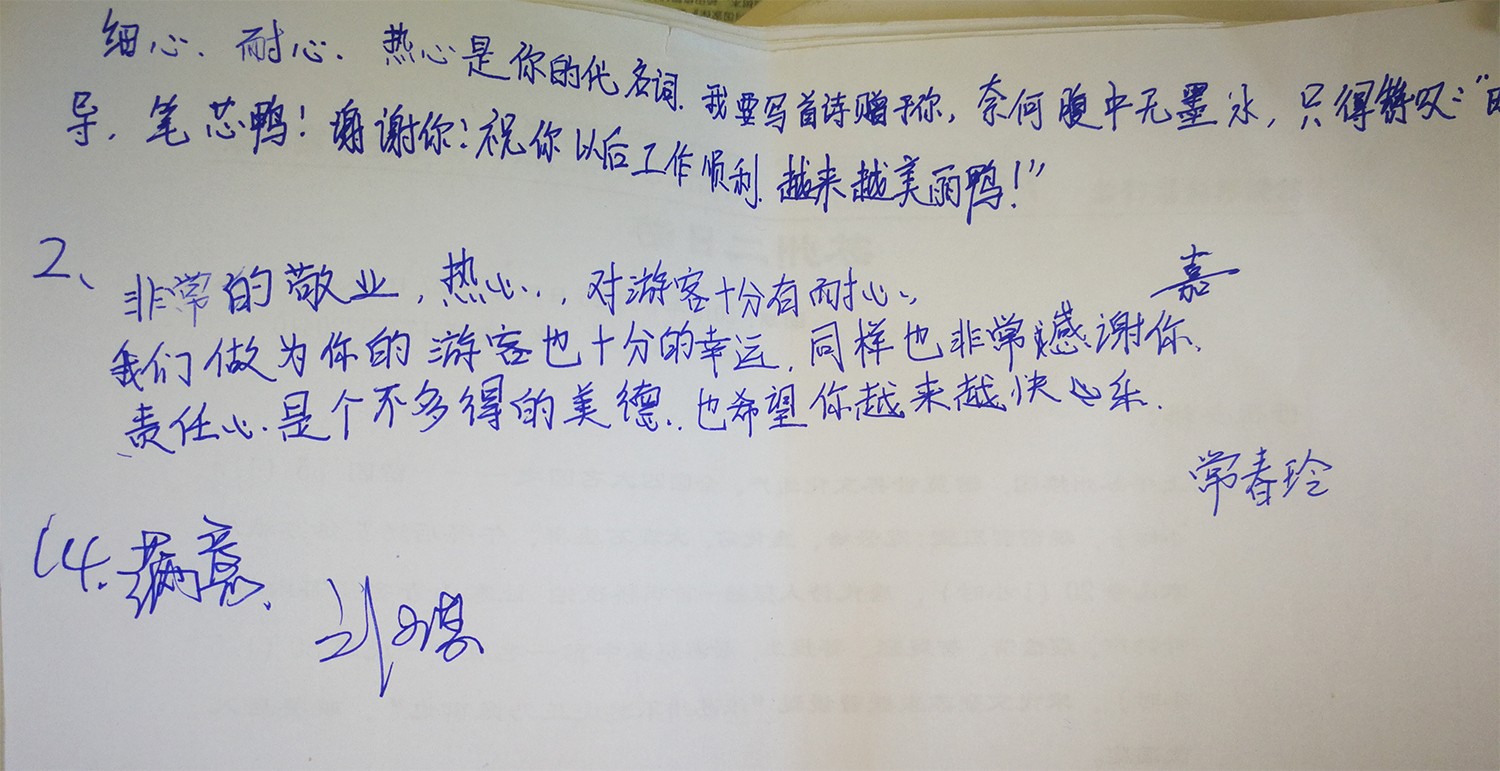 细心、耐心、热心是你的代名词. 我要写首诗赠于你, 奈何腹中无墨水, 只得特叹: "
导, 笔芯鸭! 谢谢你! 祝你以后工作顺利. 越来越美丽鸭!"
嘉
2、非常的敬业, 热心, 对游客十分有耐心,
我们做为你的游客也十分的幸运, 同样也非常感谢你,
责任心是个不多得的美德, 也希望你越来越快乐.
常春玲
14. 满意.